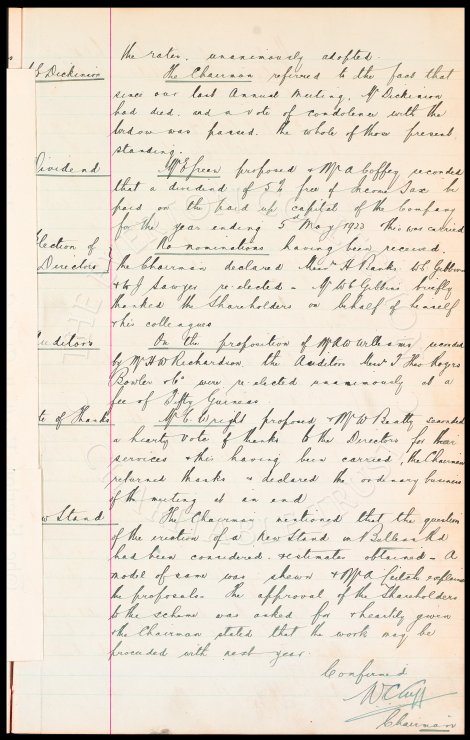 the rates, unanimously adopted.
Dickinson
The Chairman referred to the fact that
since our last Annual Meeting, Mr Dickinson
had died, and a vote of condolence with the
widow was passed, the whole of those present
standing.
Dividend
Mr E Green proposed & Mr A Coffey seconded
that a dividend of 5% free of Income Tax be
paid on the paid up capital of the Company
for the year ending 5th May 1923 this was carried
lection of
Directors
No nominations having been received,
the Chairman declared Messrs H Banks W C Gibbins
& W J Sawyer re-elected - Mr W C Gibbins briefly
thanked the Shareholders on behalf of himself
& his colleagues
uditors
On the proposition of Mr A W Williams, seconded
by Mr H W Richardson the Auditors Messrs J Theo Rogers
Bowler & Co were re-elected unanimously at a
fee of Fifty Guineas.
te of Thanks
Mr C Wright proposed & Mr W Beatty seconded
a hearty vote of thanks to the Directors for their
services & this having been carried, the Chairman
returned thanks & declared the ordinary business
of the meeting at an end
w Stand
The Chairman mentioned that the question
of the erection of a New Stand in Bullens Rd
had been considered & estimates obtained - A
model of same was shewn & Mr A Leitch explained
the proposals. The approval of the Shareholders
to the scheme was asked for & heartily given
& the Chairman stated that the work may be
proceeded with next year.
Confirmed
W C Cuff
Chairman